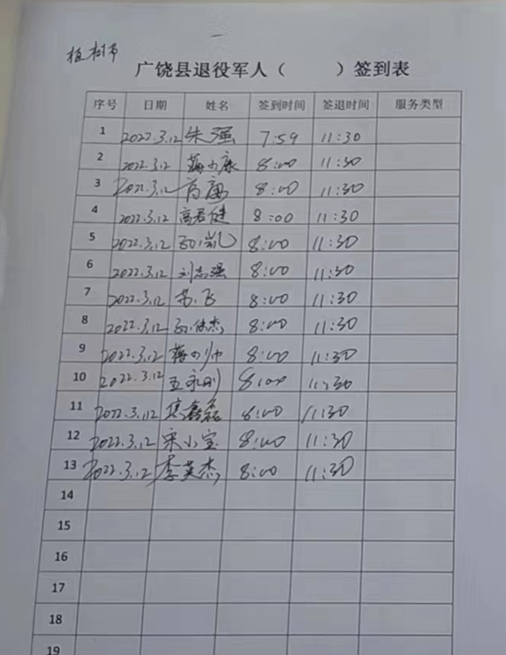 植树节
广饶县退役军人（ ）签到表
序号 日期 姓名 签到时间 签退时间 服务类型
1 2022.3.12 朱强 7:59 11:30
2 2022.3.12 蒋小康 8:00 11:30
3 2022.3.12 8:00 11:30
4 2022.3.12 高君健 8:00 11:30
5 2022.3.12 8:00 11:30
6 2022.3.12 刘志强 8:00 11:30
7 2022.3.12 苏飞 8:00 11:30
8 2022.3.12 8:00 11:30
9 2022.3.12 蒋小帅 8:00 11:30
10 2022.3.12 王永刚 8:00 11:30
11 2022.3.12 8:00 11:30
12 2022.3.12 宋小宝 8:00 11:30
13 2022.3.12 李英杰 8:00 11:30
14
15
16
17
18
19